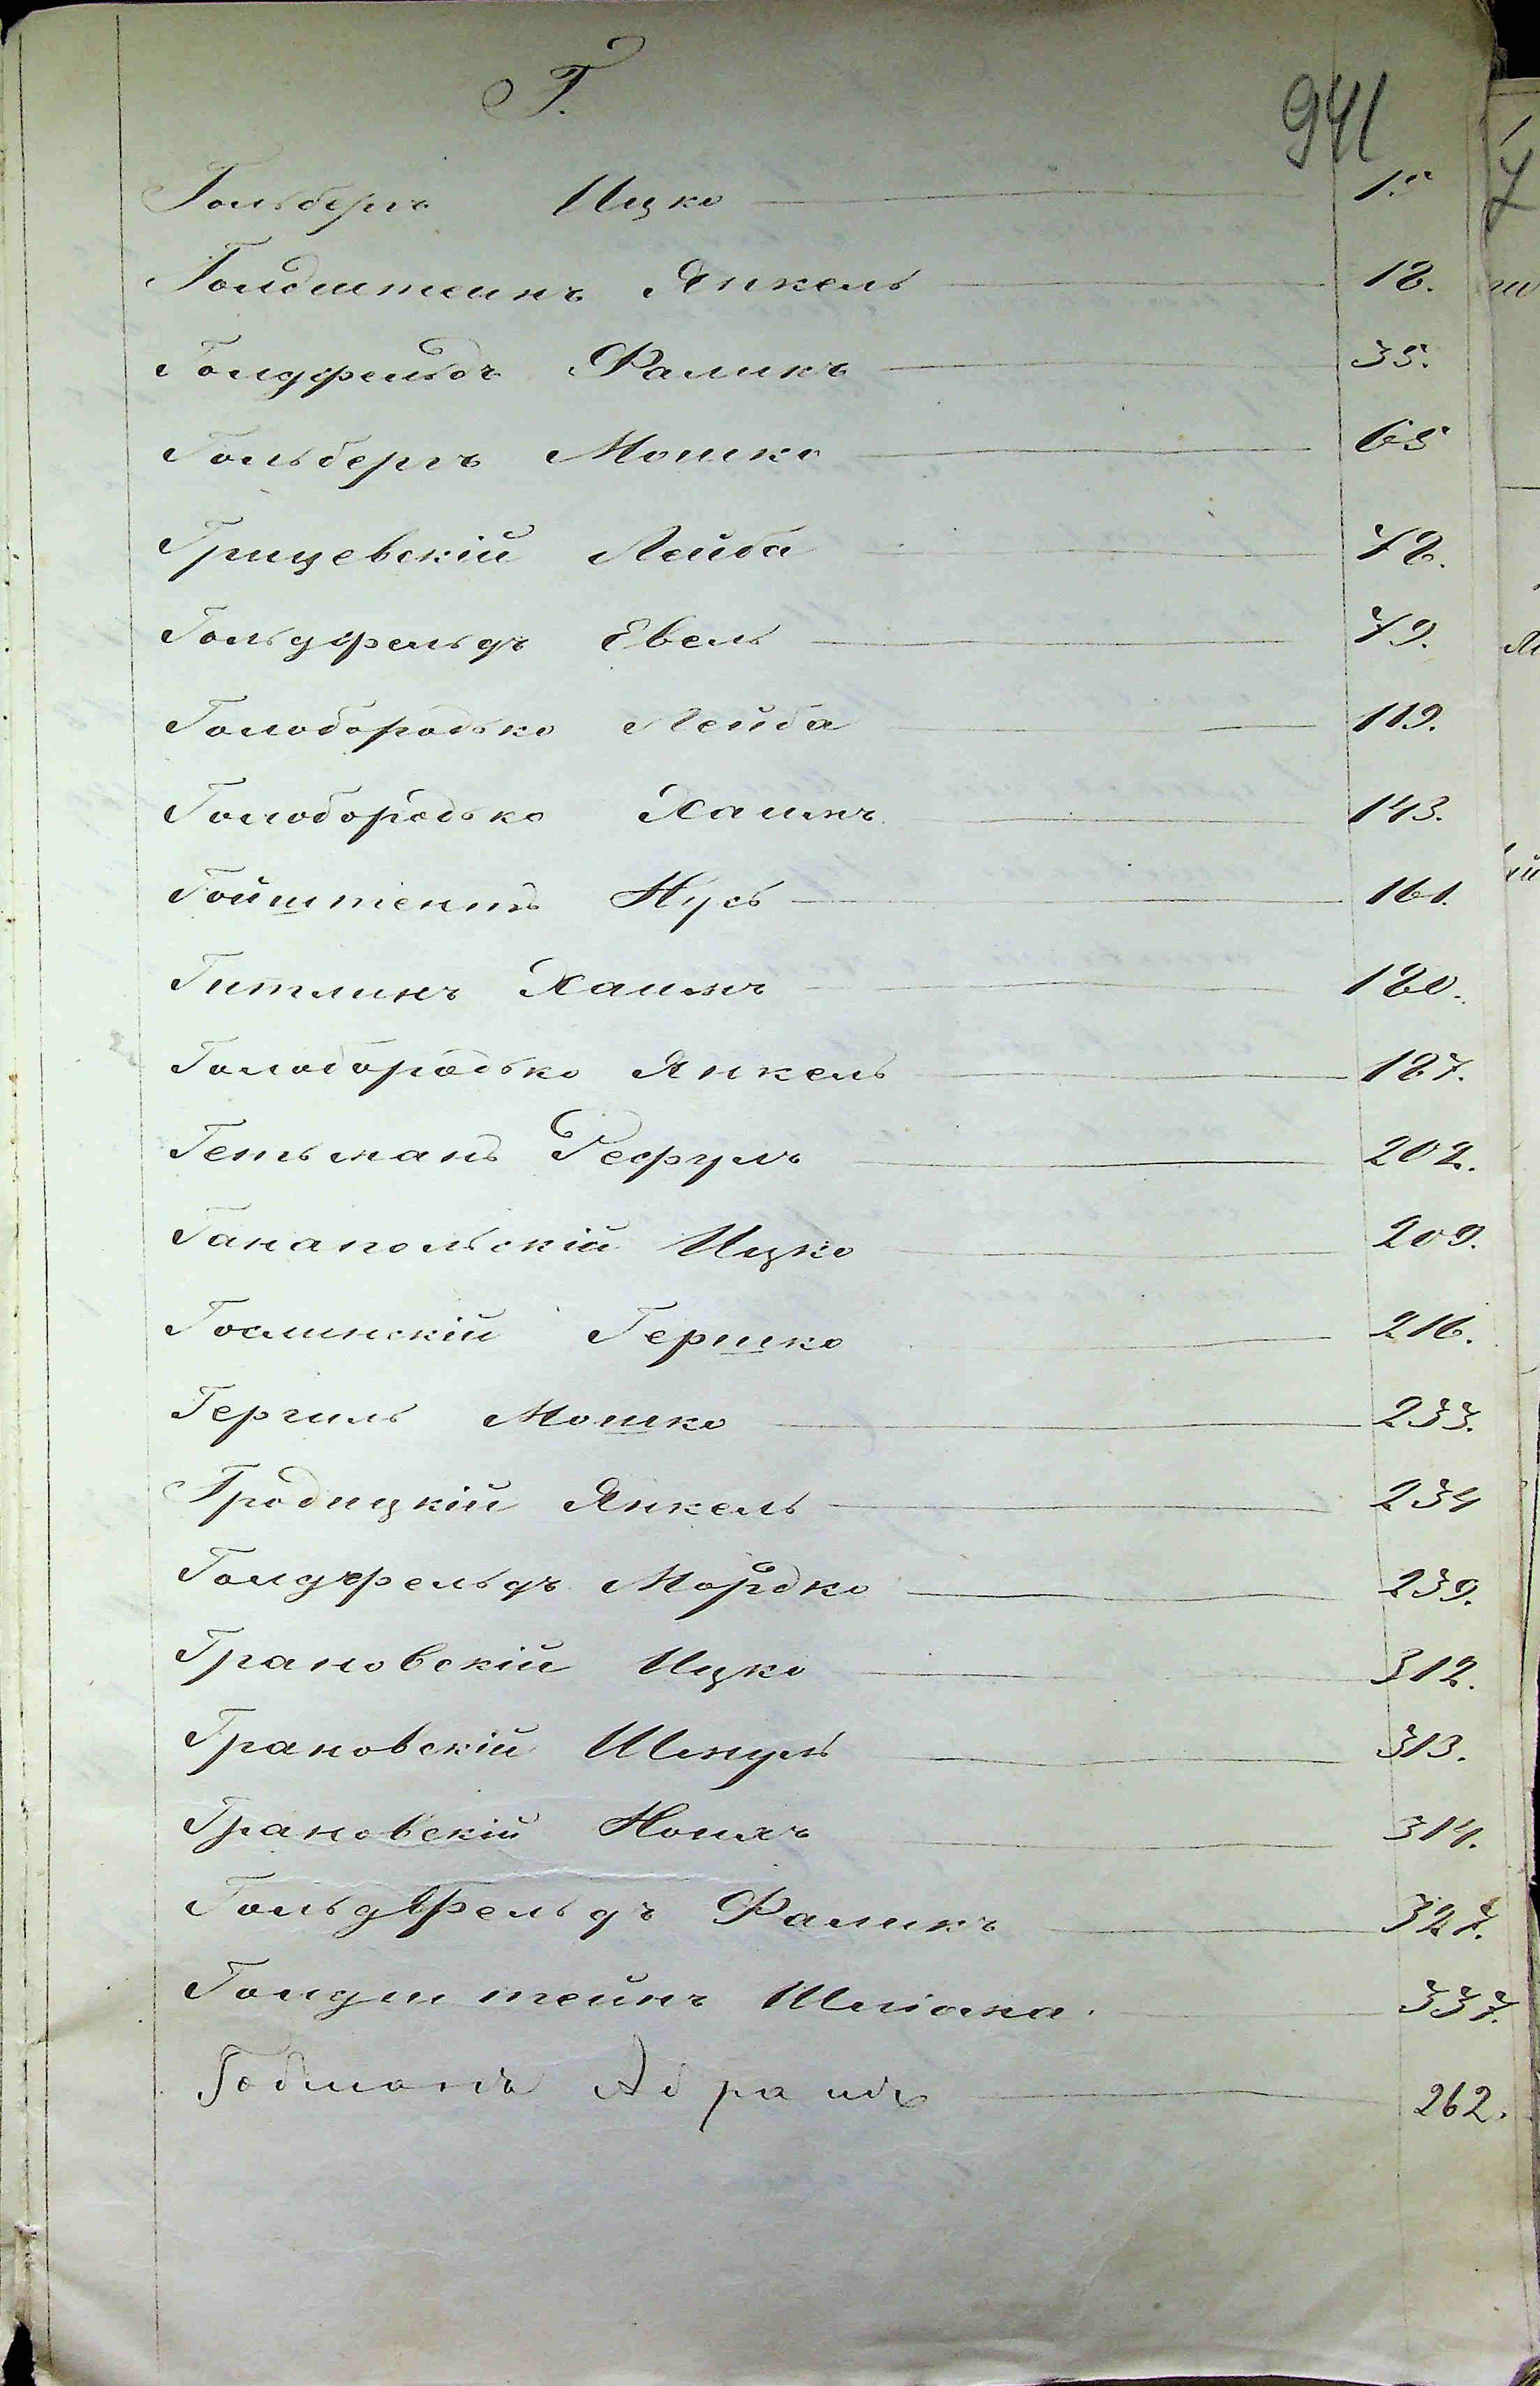 Г.
941
Гольберг Ицко 15
Голдштеинъ Янкель 18.
Голдфельдъ Фаликъ 35.
Гольбергъ Мошко 65
Грицевскій Лейба 78.
Гольдфельдъ Евель 79.
Голобородько Лейба 119.
Голобородько Хаимъ 143.
Гойштенъ Нусь 161.
Гитликъ Хаимъ 180.
Голобородько Янкель 187.
Гетьманъ 202.
Ганапольскій Ицко 209.
Гослинскій Гершко 216.
Гергиль Мошко 233.
Гродицкій Янкель 234
Голдфельдъ Мордко 239.
Грановскій Ицко 312.
Грановскій Шмуль 313.
Грановскій Ноихъ 314.
Гольдфельдъ Фаликъ 327.
Голдштейнъ Шліома 337.
Абрамъ 262.